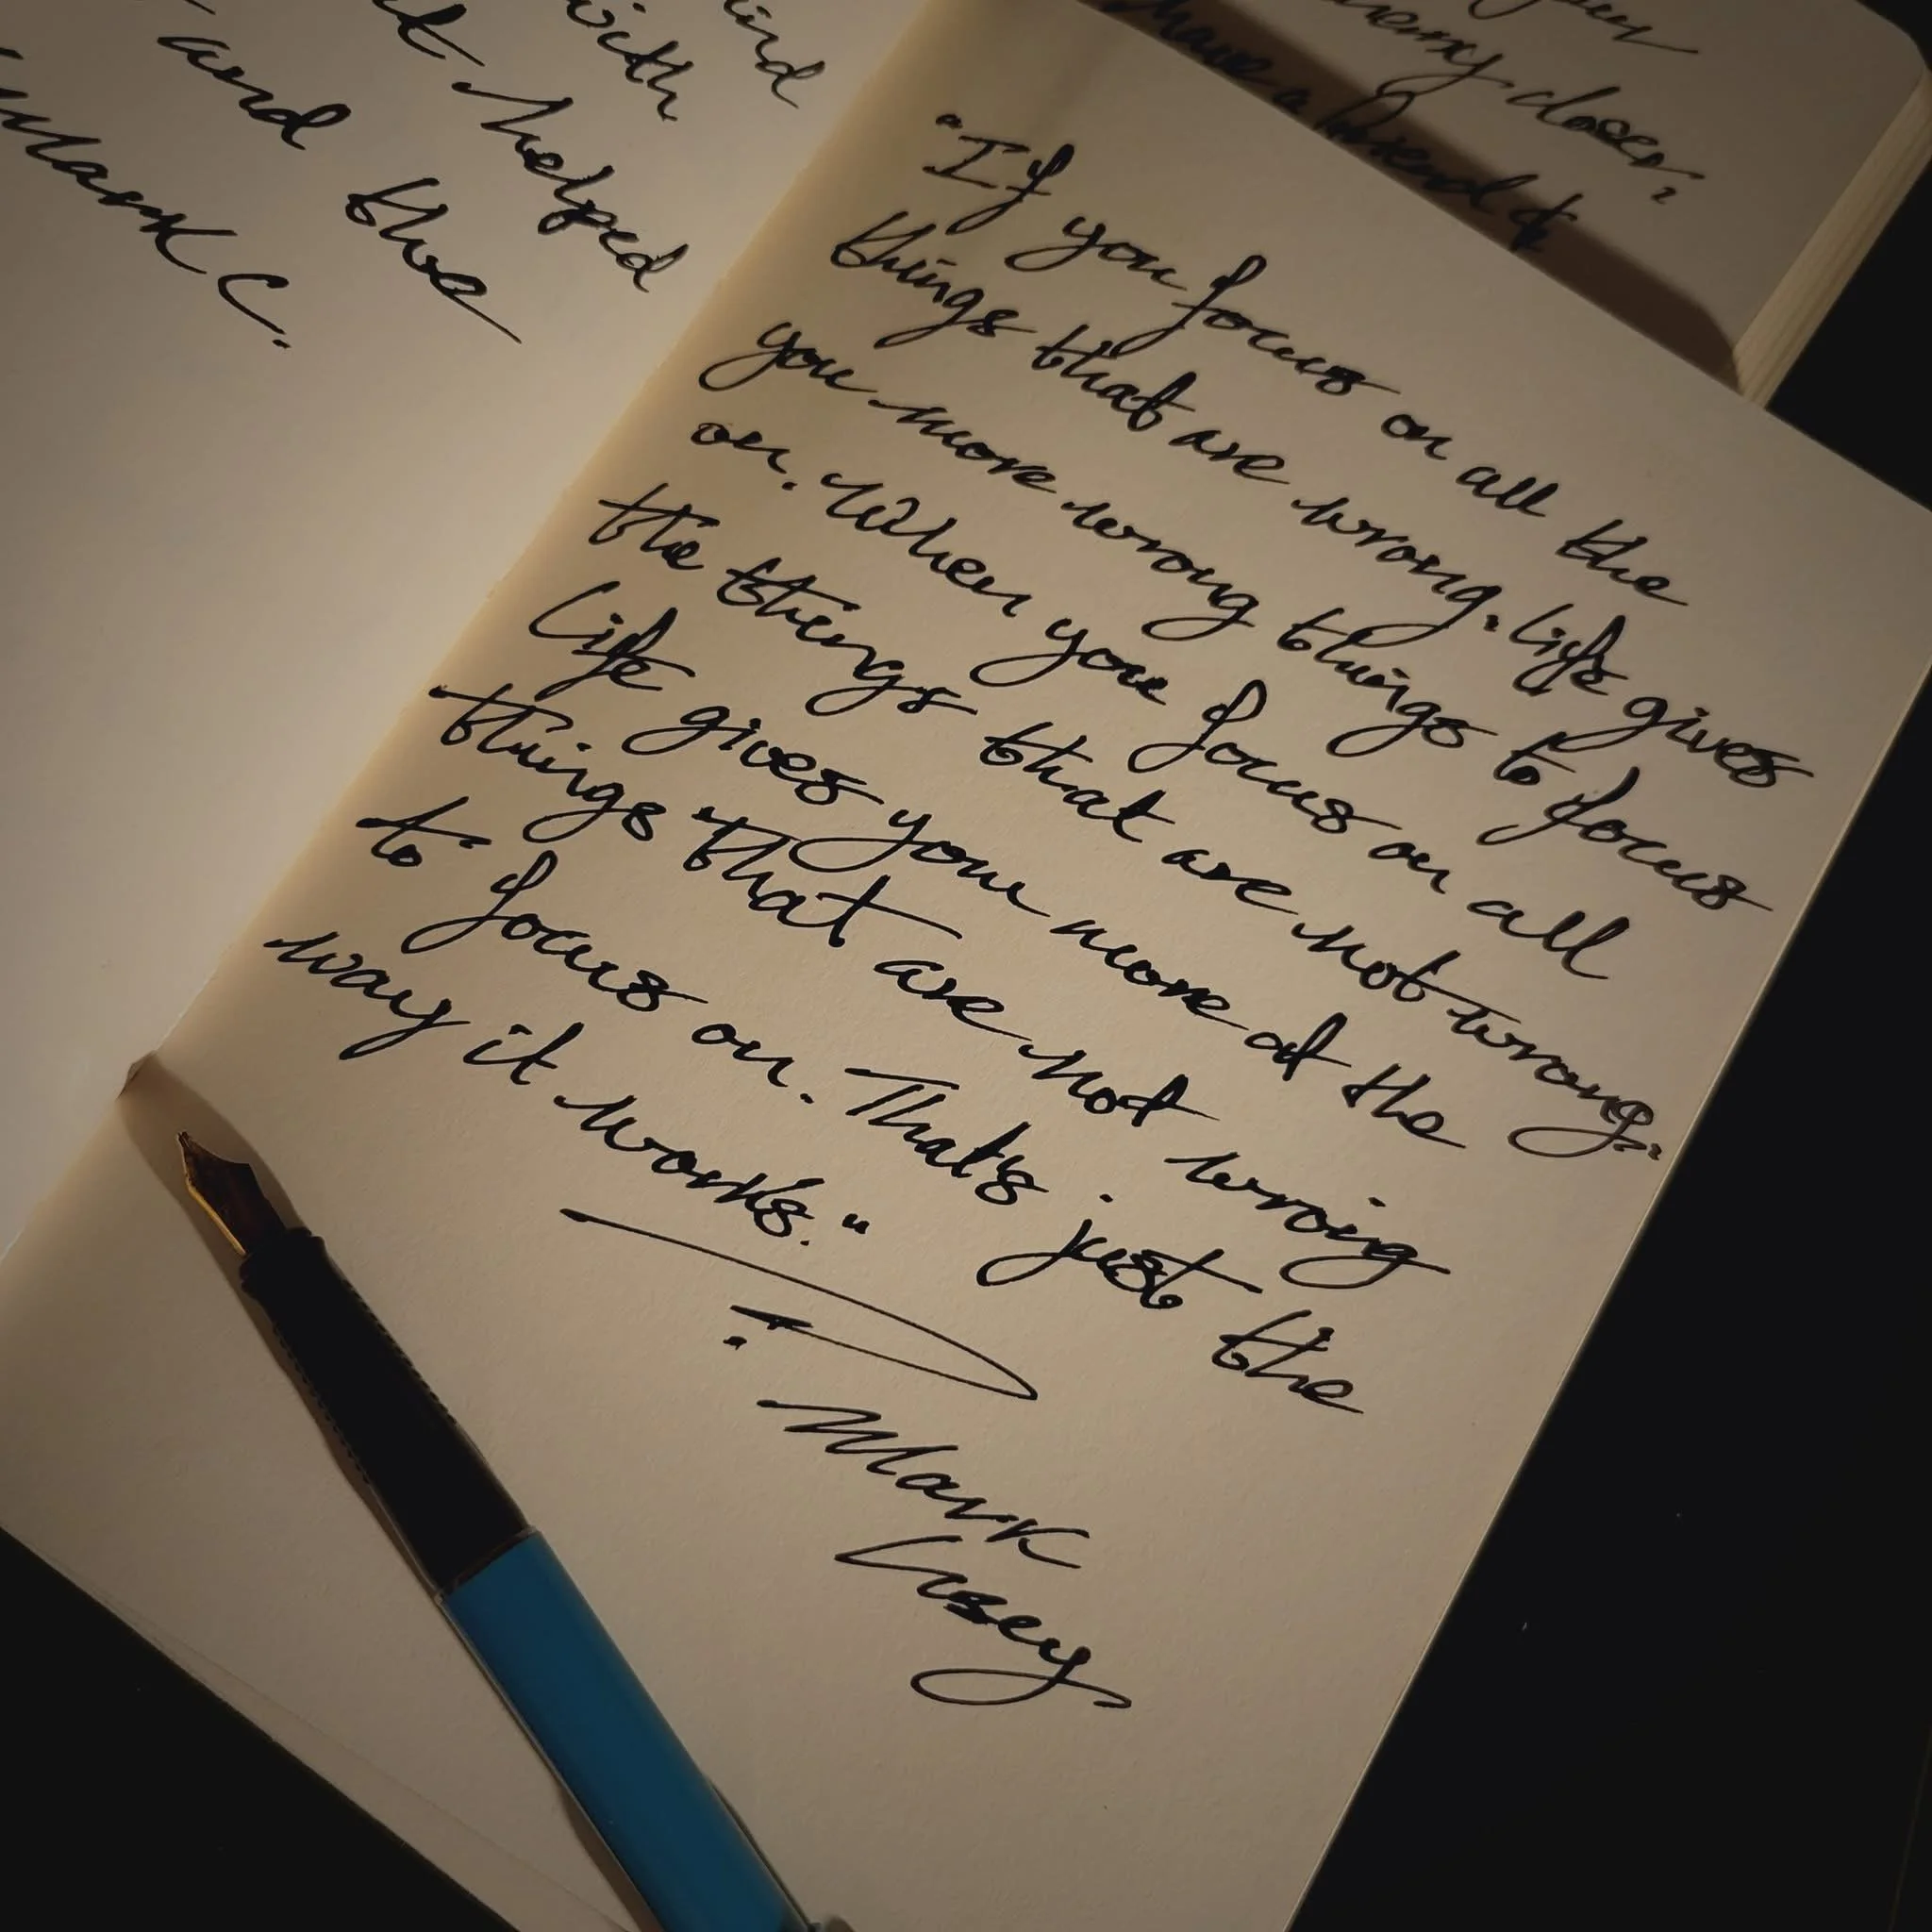 ind
with
it helped
and the
Mark C.
your
enemy closer,
have a friend &
"If you focus on all the
things that are wrong, life gives
you more wrong things to focus
on. When you focus on all
the things that are not wrong,
life gives you more of the
things that are not wrong
to focus on. That's just the
way it works."
Mark
Visey